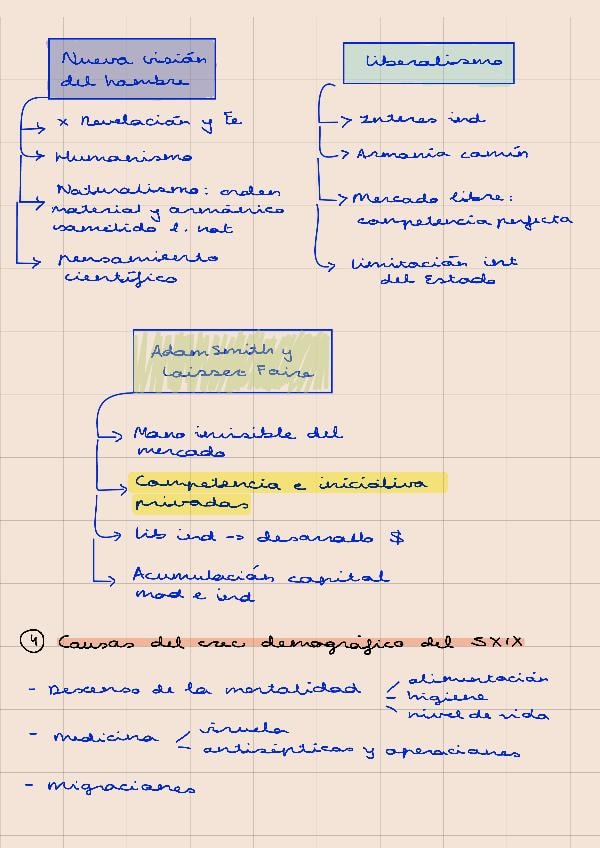 Nueva visión
del hombre
x Revelación y Fe
Humanismo
Naturalismo: orden
material y armónico
sometido l. nat
Pensamiento
científico
Liberalismo
Interes ind
Armonía común
Mercado libre:
competencia perfecta
Limitación int
del Estado
Adam Smith y
Laisser Faire
Mano invisible del
mercado
Competencia e iniciativa
privadas
Lib ind -> desarrollo $
Acumulación capital
mod e ind
4 Causas del crec demográfico del SXIX
- Descenso de la mortalidad
alimentación
- higiene
nivel de vida
- Medicina
viruela
antisépticos y operaciones
- Migraciones